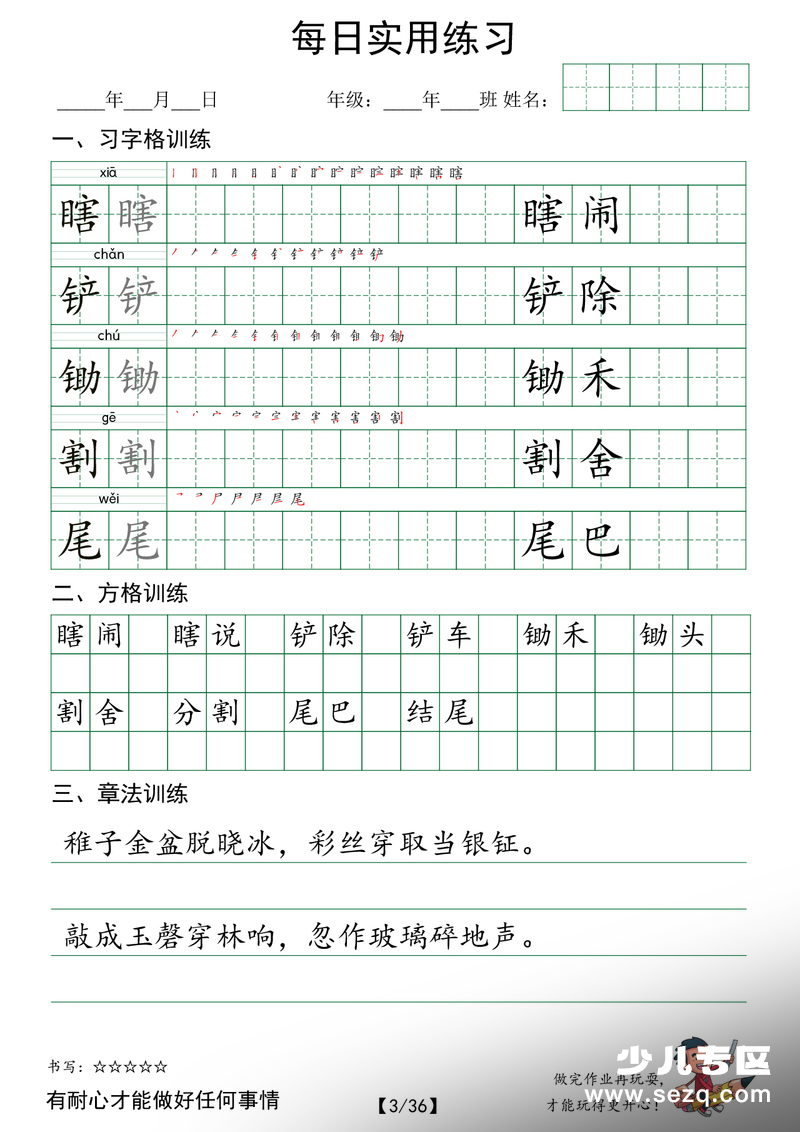 每日实用练习
_____年___月___日 年级：____年____班 姓名：
一、习字格训练
xiā
瞎 瞎 瞎 闹
chǎn
铲 铲 铲 除
chú
锄 锄 锄 禾
gē
割 割 割 舍
wěi
尾 尾 尾 巴
二、方格训练
瞎 闹 瞎 说 铲 除 铲 车 锄 禾 锄 头
割 舍 分 割 尾 巴 结 尾
三、章法训练
稚子金盆脱晓冰，彩丝穿取当银钲。
敲成玉磬穿林响，忽作玻璃碎地声。
书写：☆☆☆☆☆
有耐心才能做好任何事情
【3/36】
做完作业再玩耍，
才能玩得更开心！
少儿专区
www.sezq.com